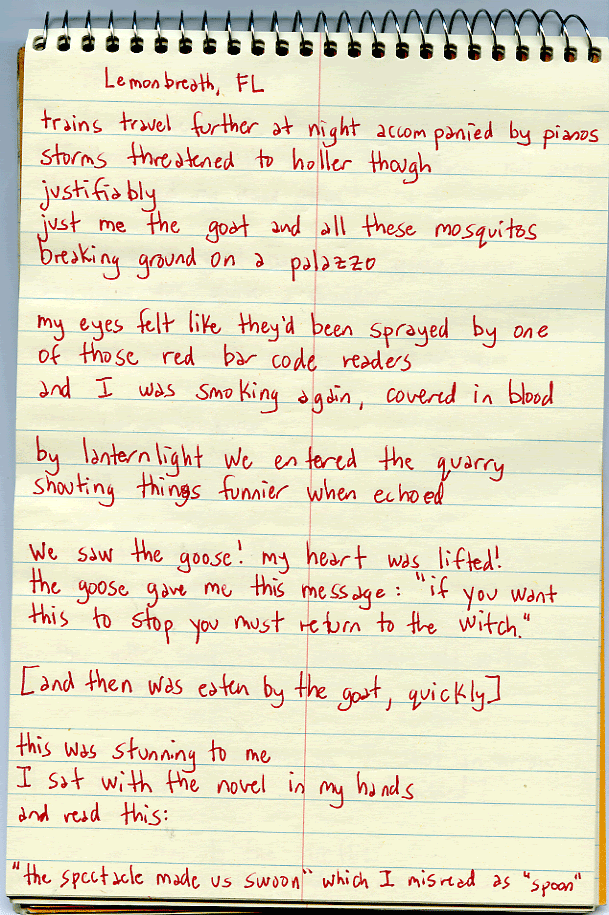 Lemonbreath, FL
trains travel further at night accompanied by pianos
storms threatened to holler though
justifiably
just me the goat and all these mosquitos
breaking ground on a palazzo
my eyes felt like they'd been sprayed by one
of those red bar code readers
and I was smoking again, covered in blood
by lanternlight we entered the quarry
shouting things funnier when echoed
we saw the goose! my heart was lifted!
the goose gave me this message: "if you want
this to stop you must return to the witch."
[and then was eaten by the goat, quickly]
this was stunning to me
I sat with the novel in my hands
and read this:
"the spectacle made us swoon" which I misread as "spoon"